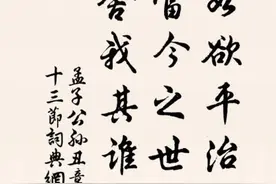 如欲平治
當今之世
舍我其誰
孟子公孫丑章
十三節詞典網